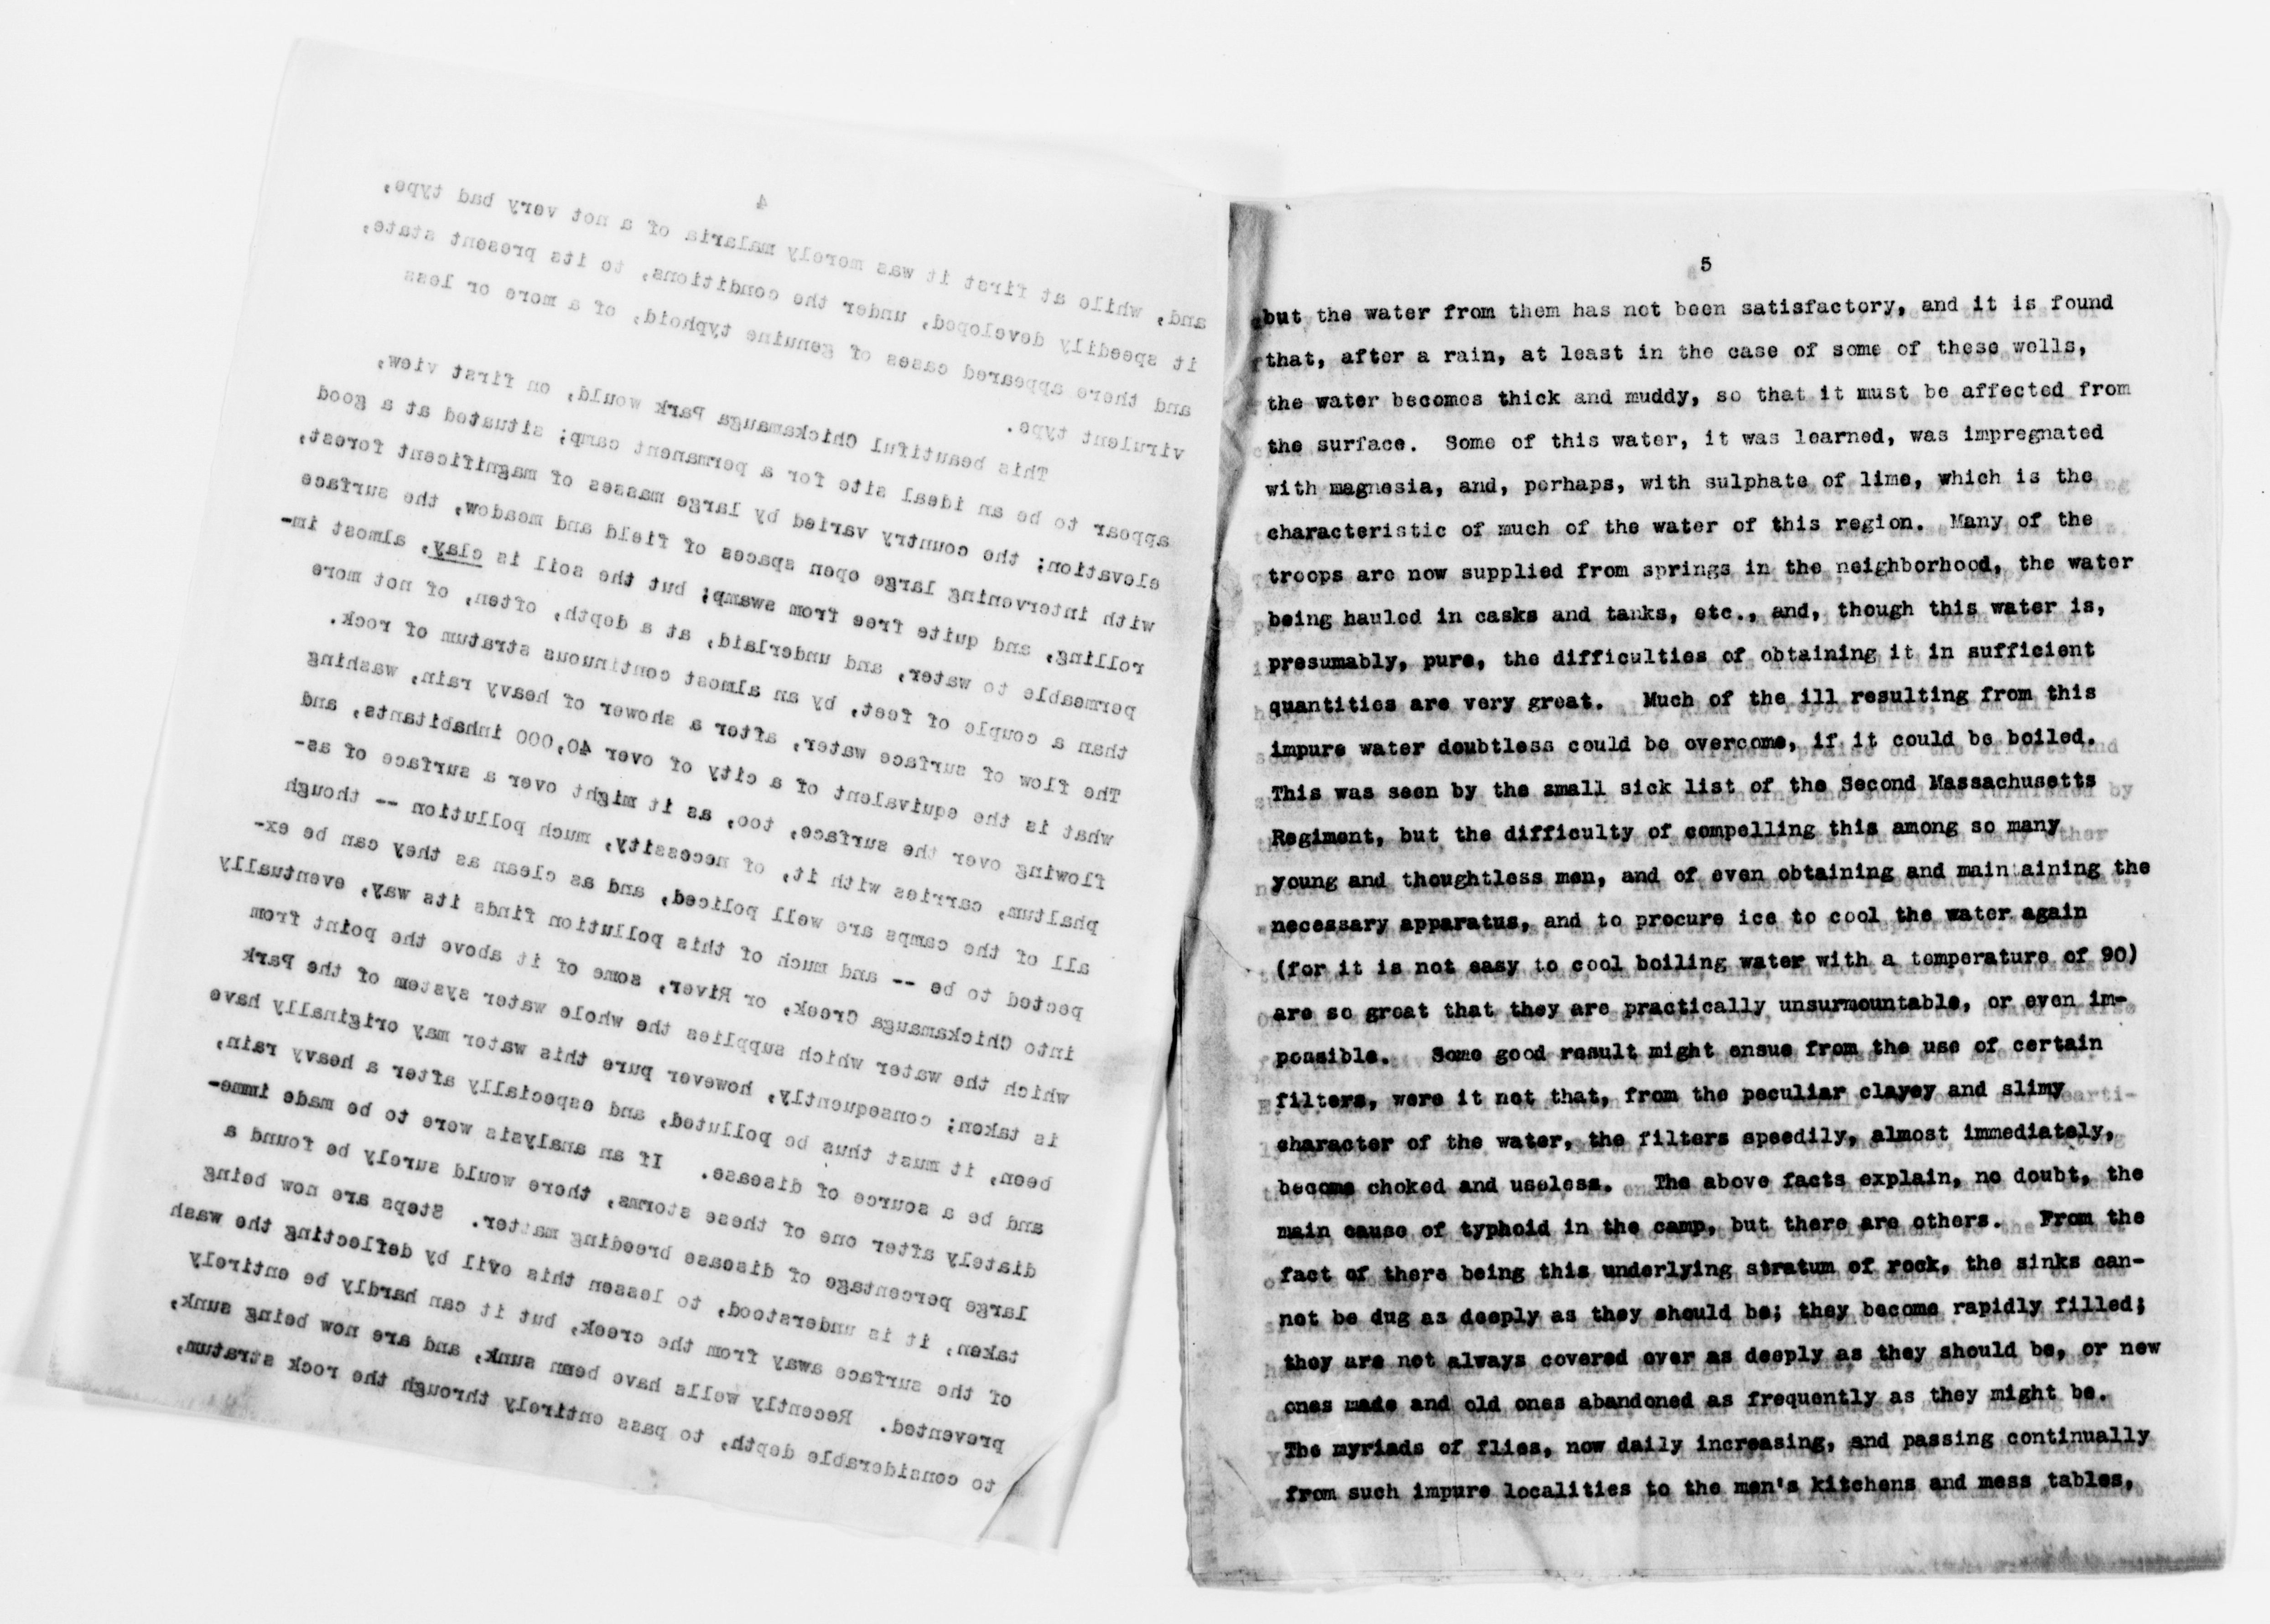 4
and, while at first it was merely malaria of a not very bad type,
it speedily developed, under the conditions, to its present state,
and there appeared cases of genuine typhoid, of a more or less
virulent type.
This beautiful Chickamauga Park would, on first view,
appear to be an ideal site for a permanent camp; situated at a good
elevation; the country varied by large masses of magnificent forest,
with intervening large open spaces of field and meadow, the surface
rolling, and quite free from swamp; but the soil is clay, almost im-
permeable to water, and underlaid, at a depth, often, of not more
than a couple of feet, by an almost continuous stratum of rock.
The flow of surface water, after a shower of heavy rain, washing
what is the equivalent of a city of over 40,000 inhabitants, and
flowing over the surface, too, as it might over a surface of as-
phaltum, carries with it, of necessity, much pollution -- though
all of the camps are well policed, and as clean as they can be ex-
pected to be -- and much of this pollution finds its way, eventually
into Chickamauga Creek, or River, some of it above the point from
which the water which supplies the whole water system of the Park
is taken; consequently, however pure this water may originally have
been, it must thus be polluted, and especially after a heavy rain,
and be a source of disease. If an analysis were to be made imme-
diately after one of these storms, there would surely be found a
large percentage of disease breeding matter. Steps are now being
taken, it is understood, to lessen this evil by deflecting the wash
of the surface away from the creek, but it can hardly be entirely
prevented. Recently wells have been sunk, and are now being sunk,
to considerable depth, to pass entirely through the rock stratum,
5
but the water from them has not been satisfactory, and it is found
that, after a rain, at least in the case of some of these wells,
the water becomes thick and muddy, so that it must be affected from
the surface. Some of this water, it was learned, was impregnated
with magnesia, and, perhaps, with sulphate of lime, which is the
characteristic of much of the water of this region. Many of the
troops are now supplied from springs in the neighborhood, the water
being hauled in casks and tanks, etc., and, though this water is,
presumably, pure, the difficulties of obtaining it in sufficient
quantities are very great. Much of the ill resulting from this
impure water doubtless could be overcome, if it could be boiled.
This was seen by the small sick list of the Second Massachusetts
Regiment, but the difficulty of compelling this among so many
young and thoughtless men, and of even obtaining and maintaining the
necessary apparatus, and to procure ice to cool the water again
(for it is not easy to cool boiling water with a temperature of 90)
are so great that they are practically unsurmountable, or even im-
possible. Some good result might ensue from the use of certain
filters, were it not that, from the peculiar clayey and slimy
character of the water, the filters speedily, almost immediately,
become choked and useless. The above facts explain, no doubt, the
main cause of typhoid in the camp, but there are others. From the
fact of there being this underlying stratum of rock, the sinks can-
not be dug as deeply as they should be; they become rapidly filled;
they are not always covered over as deeply as they should be, or new
ones made and old ones abandoned as frequently as they might be.
The myriads of flies, now daily increasing, and passing continually
from such impure localities to the men's kitchens and mess tables,